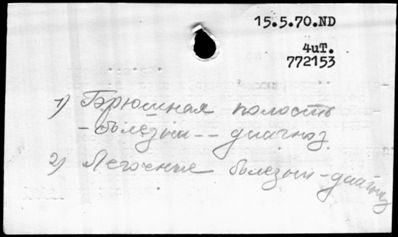 15.5.70.ND
4иT.
772153
1) Брюшная полость
- болезни -- диагноз
2) Легочные болезни - диагноз